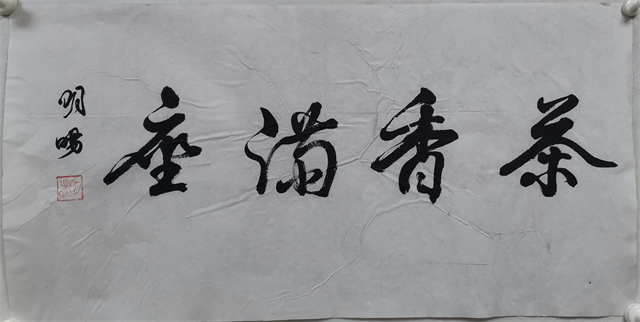 茶香满座
明旸